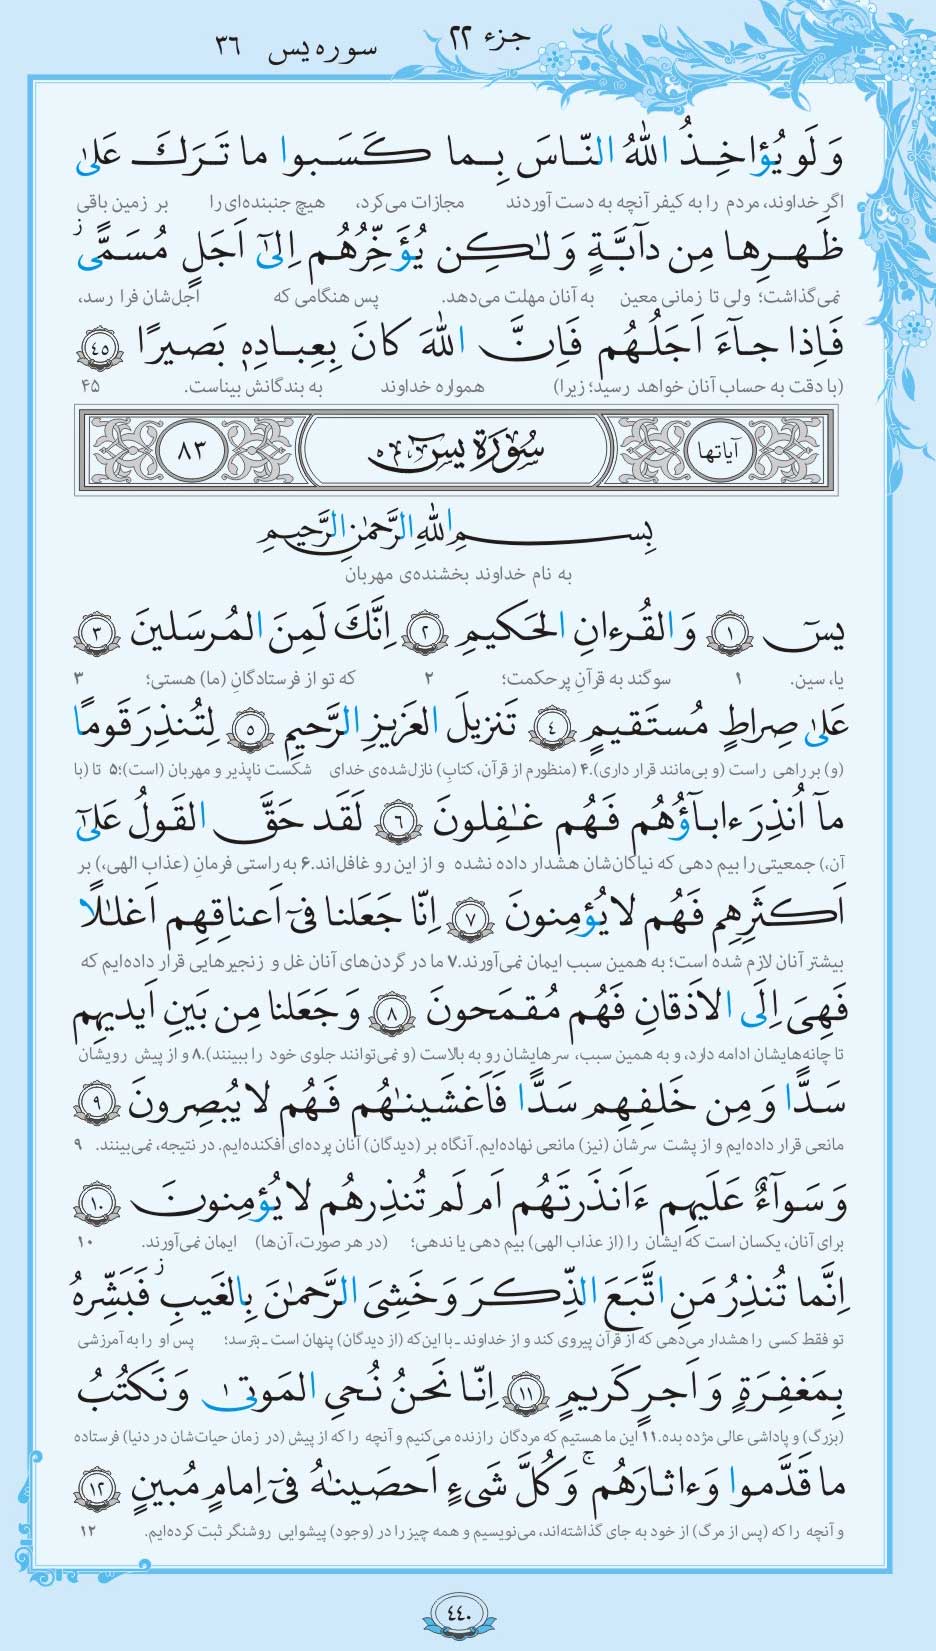 جزء ۲۲
سوره یس ۳۶
وَ لَو یُؤاخِذُ اللّٰهُ النّاسَ بِما کَسَبوا ما تَرَکَ عَلیٰ
اگر خداوند، مردم را به کیفر آنچه به دست آوردند مجازات می‌کرد، هیچ جنبنده‌ای را بر زمین باقی
ظَهرِها مِن دآبَّةٍ وَ لٰکِن یُؤَخِّرُهُم اِلیٰٓ اَجَلٍ مُسَمًّی ز
نمی‌گذاشت؛ ولی تا زمانی معین به آنان مهلت می‌دهد. پس هنگامی که اجل‌شان فرا رسد،
فَاِذا جآءَ اَجَلُهُم فَاِنَّ اللّٰهَ کانَ بِعِبادِهٖ بَصیرًا ﴿٤٥﴾
(با دقت به حساب آنان خواهد رسید؛ زیرا) همواره خداوند به بندگانش بیناست. ۴۵
آیاتها
سُورَةُ یسٓ
۸۳
بِسمِ اللّٰهِ الرَّحمٰنِ الرَّحیمِ
به نام خداوند بخشنده‌ی مهربان
یسٓ ﴿١﴾ وَ القُرءانِ الحَکیمِ ﴿٢﴾ اِنَّکَ لَمِنَ المُرسَلینَ ﴿٣﴾
یا، سین. ۱ سوگند به قرآنِ پرحکمت؛ ۲ که تو از فرستادگانِ (ما) هستی؛ ۳
عَلیٰ صِراطٍ مُستَقیمٍ ﴿٤﴾ تَنزیلَ العَزیزِ الرَّحیمِ ﴿٥﴾ لِتُنذِرَ قَومًا
(و) بر راهی راست (و بی‌مانند قرار داری).۴ (منظورم از قرآن، کتابِ) نازل‌شده‌ی خدای شکست ناپذیر و مهربان (است)؛۵ تا (با
مآ اُنذِرَ ءابآؤُهُم فَهُم غٰفِلونَ ﴿٦﴾ لَقَد حَقَّ القَولُ عَلیٰٓ
آن،) جمعیتی را بیم دهی که نیاکان‌شان هشدار داده نشده و از این رو غافل‌اند.۶ به راستی فرمانِ (عذاب الهی،) بر
اَکثَرِهِم فَهُم لا یُؤمِنونَ ﴿٧﴾ اِنّا جَعَلنا فیٓ اَعناقِهِم اَغلٰلًا
بیشتر آنان لازم شده است؛ به همین سبب ایمان نمی‌آورند.۷ ما در گردن‌های آنان غل و زنجیرهایی قرار داده‌ایم که
فَهِیَ اِلَی الاَذقانِ فَهُم مُقمَحونَ ﴿٨﴾ وَ جَعَلنا مِن بَینِ اَیدیهِم
تا چانه‌هایشان ادامه دارد، و به همین سبب، سرهایشان رو به بالاست (و نمی‌توانند جلوی خود را ببینند).۸ و از پیش رویشان
سَدًّا وَ مِن خَلفِهِم سَدًّا فَاَغشَینٰهُم فَهُم لا یُبصِرونَ ﴿٩﴾
مانعی قرار داده‌ایم و از پشت سرشان (نیز) مانعی نهاده‌ایم. آنگاه بر (دیدگان) آنان پرده‌ای افکنده‌ایم. در نتیجه، نمی‌بینند. ۹
وَ سَوآءٌ عَلَیهِم ءَاَنذَرتَهُم اَم لَم تُنذِرهُم لا یُؤمِنونَ ﴿١٠﴾
برای آنان، یکسان است که ایشان را (از عذاب الهی) بیم دهی یا ندهی؛ (در هر صورت، آن‌ها) ایمان نمی‌آورند. ۱۰
اِنَّما تُنذِرُ مَنِ اتَّبَعَ الذِّکرَ وَ خَشِیَ الرَّحمٰنَ بِالغَیبِ ز فَبَشِّرهُ
تو فقط کسی را هشدار می‌دهی که از قرآن پیروی کند و از خداوند ـ با این‌که (از دیدگان) پنهان است ـ بترسد؛ پس او را به آمرزشی
بِمَغفِرَةٍ وَ اَجرٍ کَریمٍ ﴿١١﴾ اِنّا نَحنُ نُحیِ المَوتیٰ وَ نَکتُبُ
(بزرگ) و پاداشی عالی مژده بده.۱۱ این ما هستیم که مردگان را زنده می‌کنیم و آنچه را که از پیش (در زمان حیات‌شان در دنیا) فرستاده
ما قَدَّموا وَ ءاثارَهُم ۚ وَ کُلَّ شَیءٍ اَحصَینٰهُ فیٓ اِمامٍ مُبینٍ ﴿١٢﴾
و آنچه را که (پس از مرگ) از خود به جای گذاشته‌اند، می‌نویسیم و همه چیز را در (وجود) پیشوایی روشنگر ثبت کرده‌ایم. ۱۲
٤٤٠